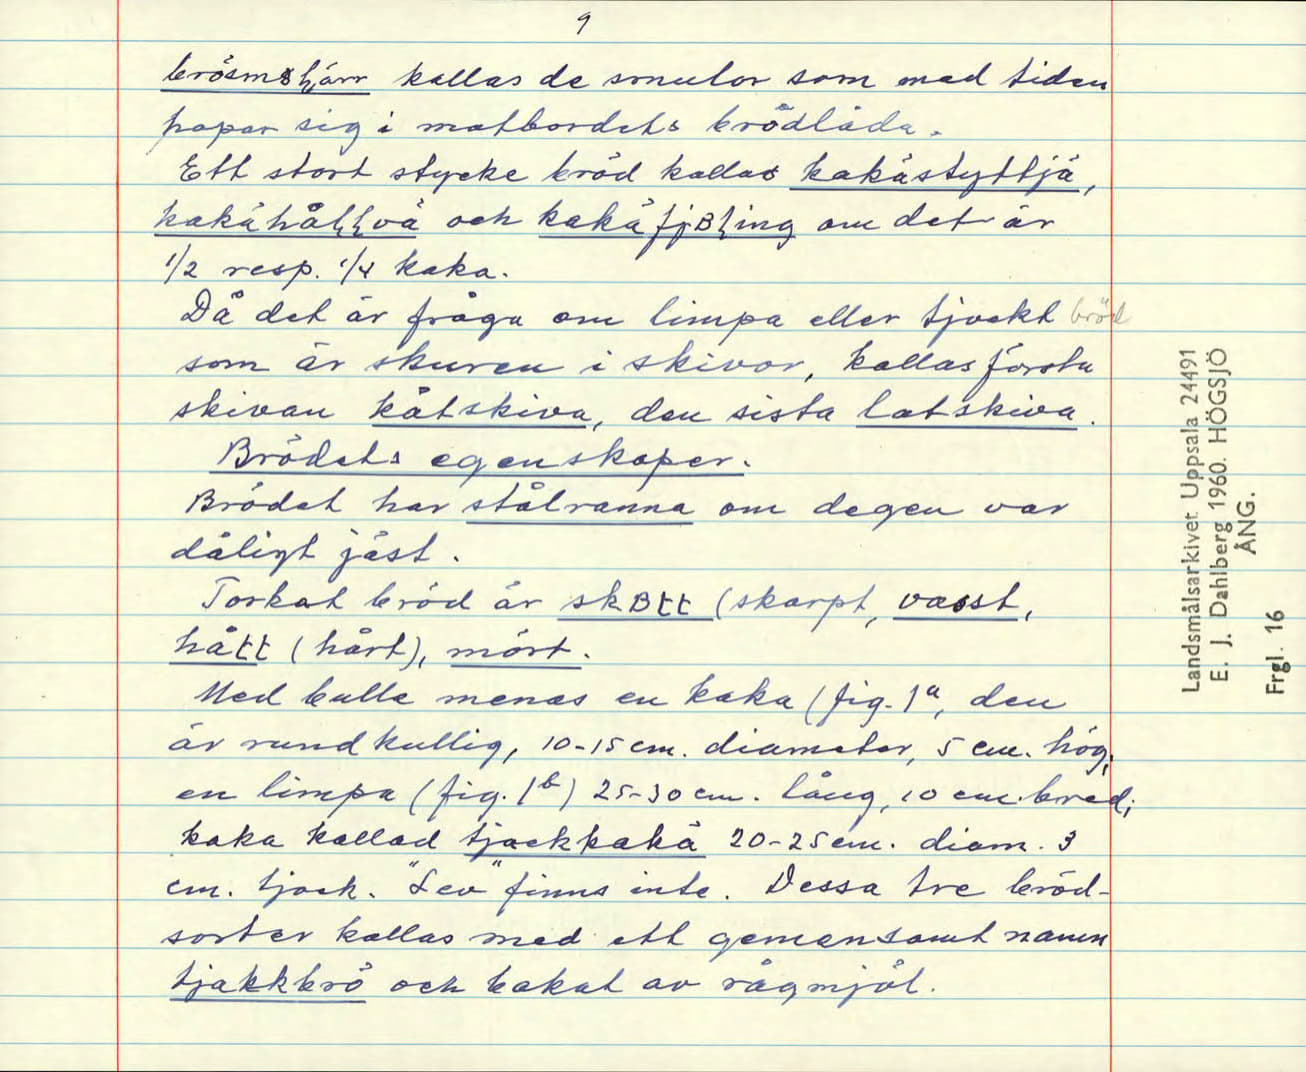 9
brösmshjärr kallas de smulor som med tiden
hopar sig i matbordets brödlåda.
Ett stort stycke bröd kallas kakästyttjä,
kakähåɭɭvä och kakäfjBɭing om det är
1/2 resp. 1/4 kaka.
Då det är fråga om limpa eller tjockt bröd
som är skuren i skivor, kallas första
skivan kåtskiva, den sista latskiva.
Brödets egenskaper.
Brödet har stålranna om degen var
dåligt jäst.
Torkat bröd är skBtt (skarpt, vasst,
hått (hårt), mört.
Med bulle menas en kaka (fig. 1a, den
är rundkullig, 10-15 cm. diameter, 5 cm. hög;
en limpa (fig. 1b) 25-30 cm. lång, 10 cm. bred;
kaka kallad tjockkakä 20-25 cm. diam. 3
cm. tjock. "Lev" finns inte. Dessa tre bröd-
sorter kallas med ett gemensamt namn
tjakkbrö och bakat av rågmjöl.
Landsmålsarkivet Uppsala 24491
E. J. Dahlberg 1960. HÖGSJÖ
ÅNG.
Frgl. 16